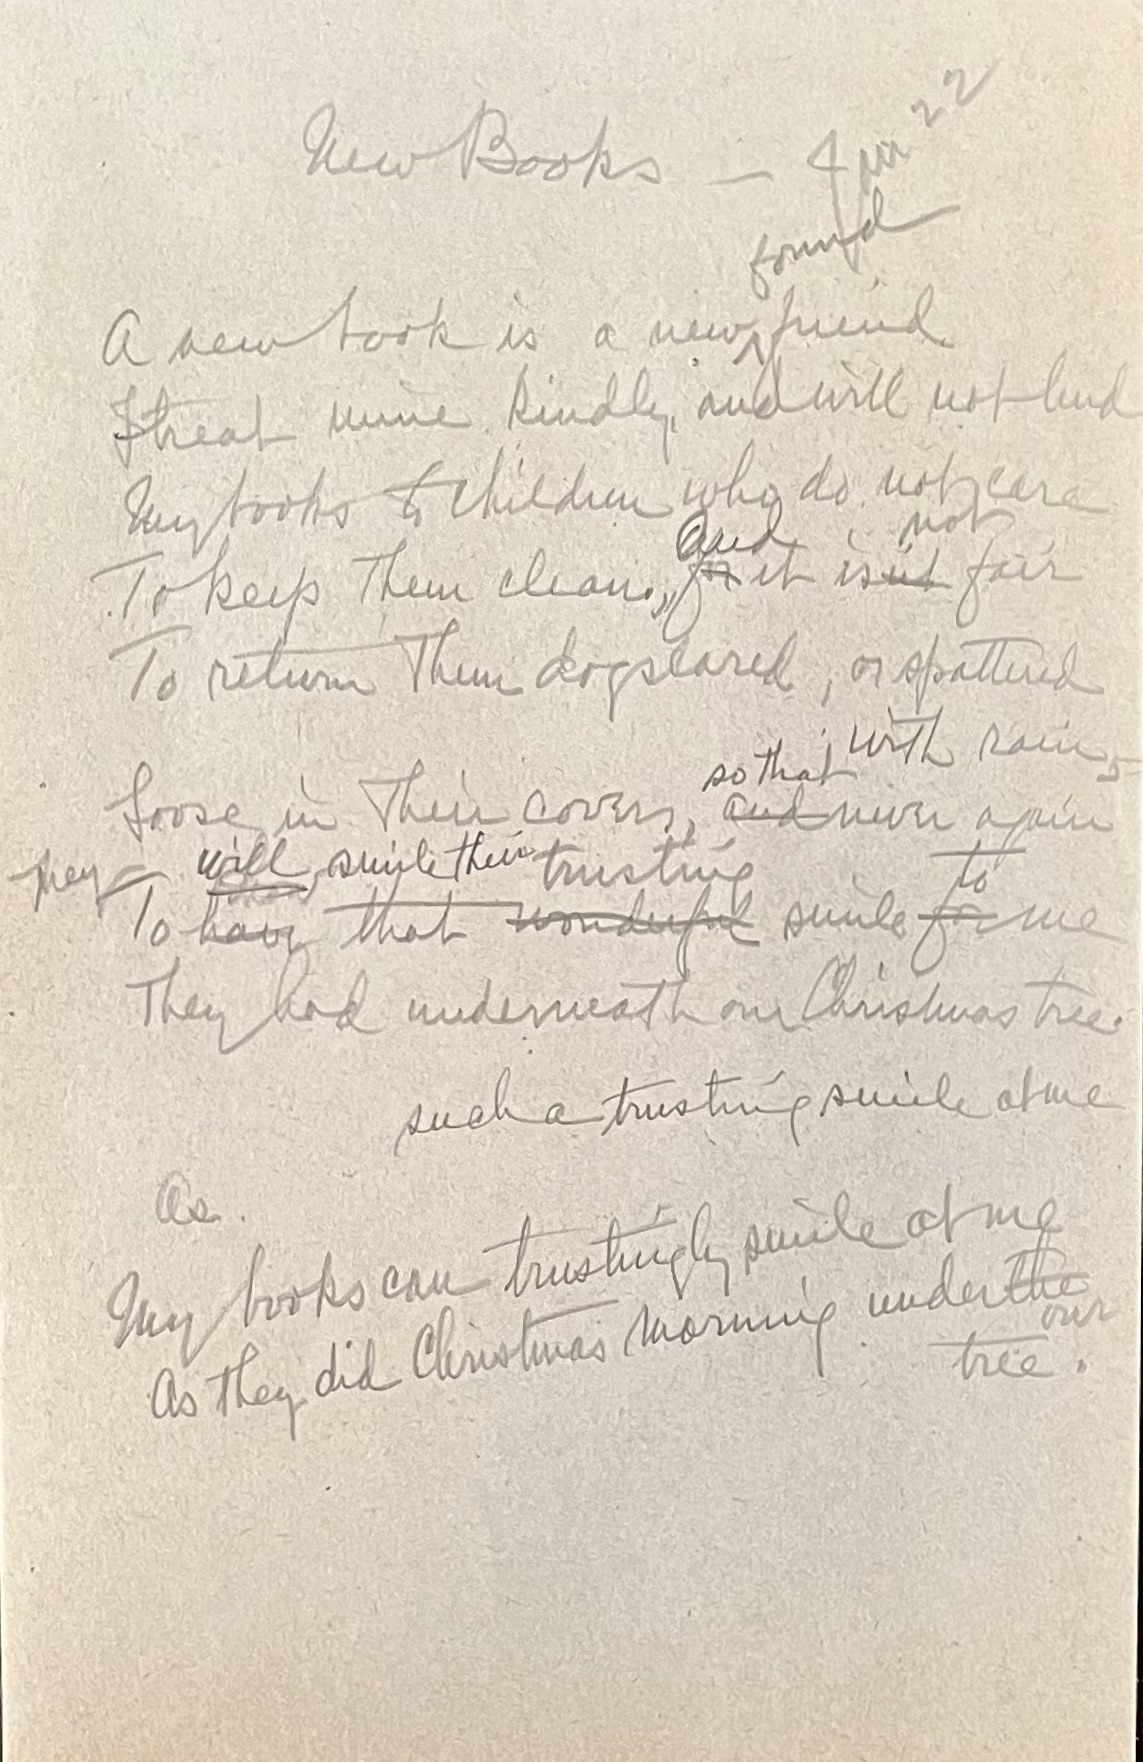 New Books — Jan 22
found
A new book is a new ^ friend
I treat mine kindly, and will not lend
My books to children who do not care
and not
To keep them clean, for it isn't fair
To return them dogseared, or spattered
with rain,
so that
Loose in their covers, and never again
They will smile their trusting to
To have that wonderful smile for me
They had underneath our Christmas tree.
such a trusting smile at me
As
My books can trustingly smile at me
As they did Christmas morning under the
our
tree.